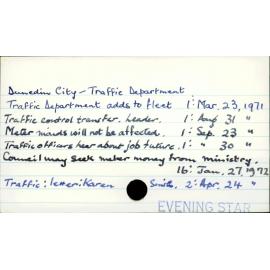 Dunedin City - Traffic Department
Traffic Department adds to fleet 1: Mar. 23, 1971
Traffic control transfer. Leader. 1: Aug 31 "
Meter maids will not be affected. 1: Sep. 23 "
Traffic officers hear about job future. 1: " 30 "
Council may seek meter money from ministry.
16: Jan. 27, 1972
Traffic: letter: Karen Smith. 2: Apr. 24 "
EVENING STAR